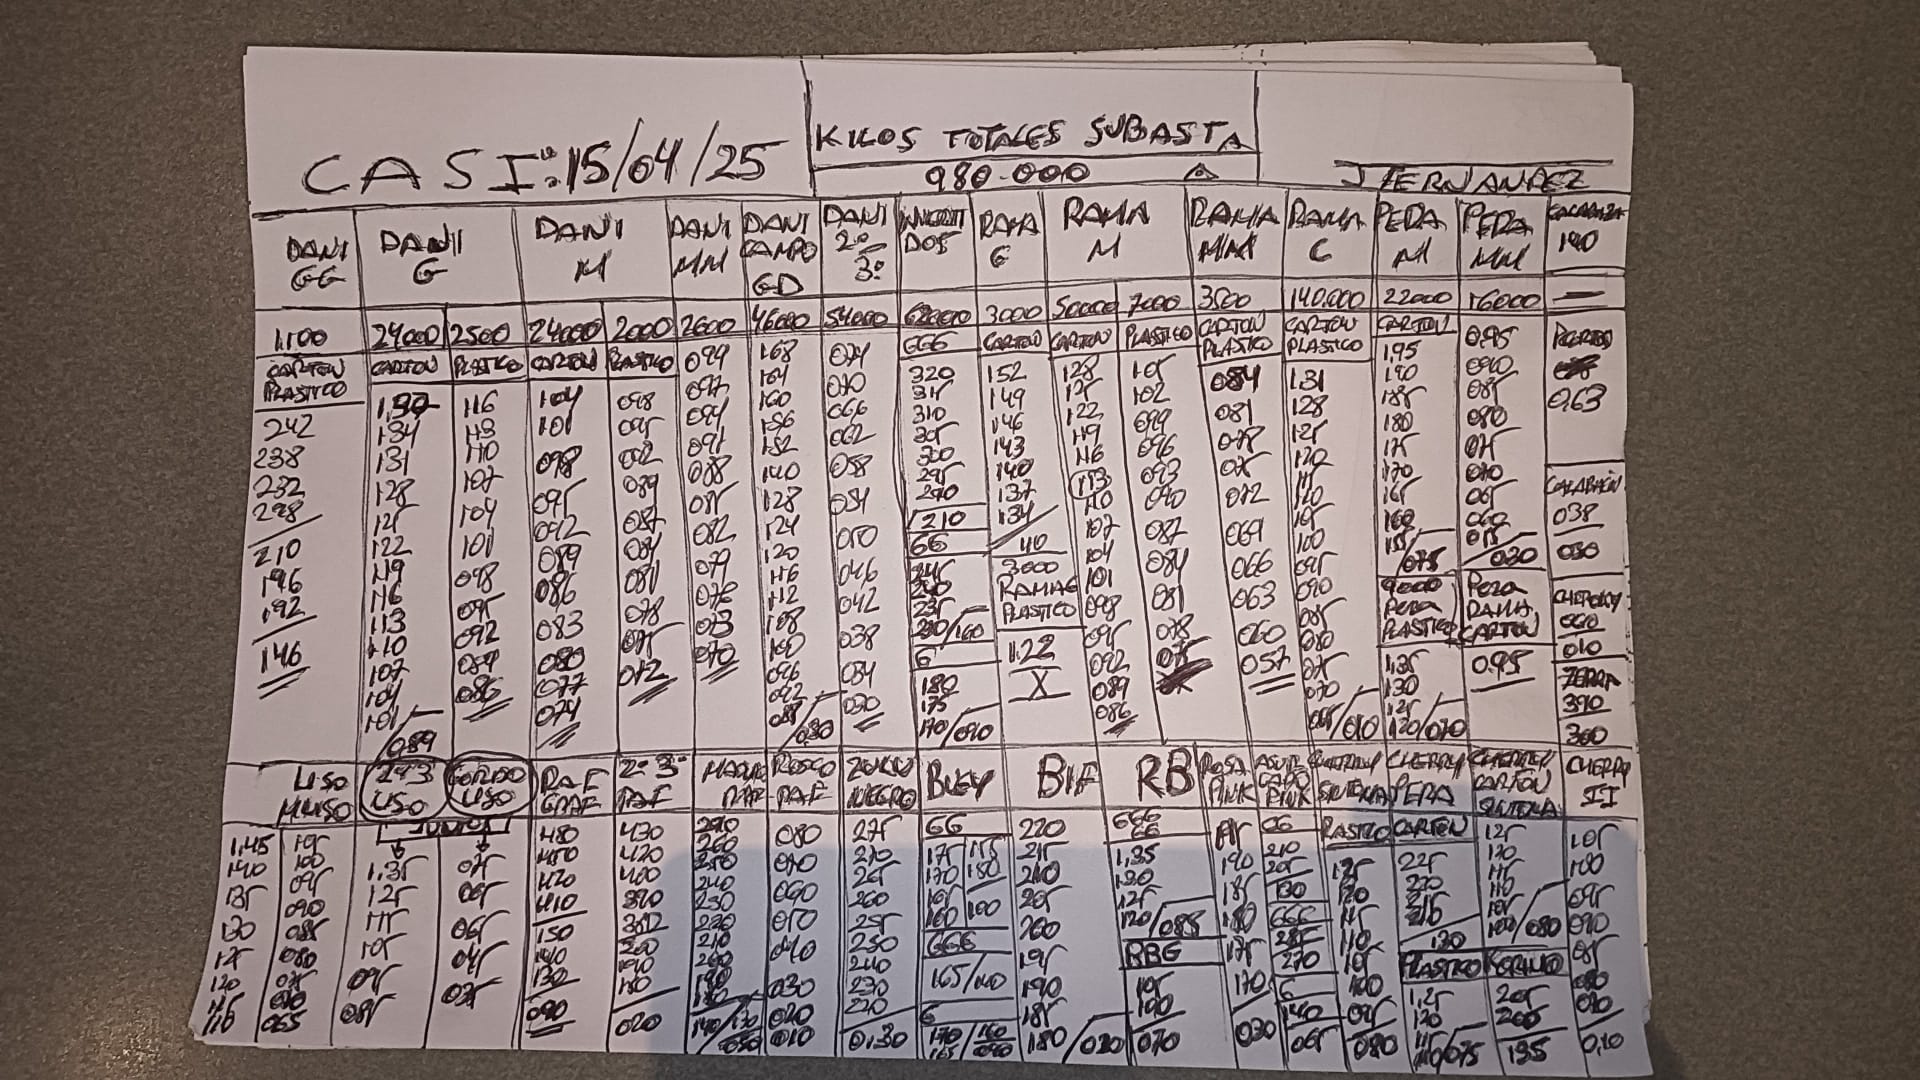 CASI: 15/04/25
KILOS TOTALES SUBASTA
980.000
J FERNANDEZ
DANI GG
DANI G
DANI M
DANI MM
DANI CAMPO GD
DANI 2º 3º
RAMA G
RAMA M
RAMA MM
RAMA C
PERA M
PERA MM
CALABAZA 190
1.100
24000
2500
24000
2000
2600
46000
54000
3000
50000
7000
3500
140.000
22000
16000
CARTON PLASTICO
242
238
232
228
210
196
192
146
CARTON
134
131
128
125
122
119
116
113
110
107
104
101/089
PLASTICO
116
113
110
107
104
101
098
095
092
089
086
CARTON
104
101
098
095
092
089
086
083
080
077
074
PLASTICO
098
095
092
089
087
084
081
078
075
072
099
097
094
091
088
085
082
079
076
073
070
168
164
160
156
152
140
128
124
120
116
112
108
100
096
092
088/030
074
070
066
062
058
054
050
046
042
038
034
030
666
320
315
310
305
300
295
290
210
66
245
240
235
230/160
6
180
175
170/090
CARTON
152
149
146
143
140
137
134
110
3000
RAMA G
PLASTICO
1.22
X
CARTON
128
125
122
119
116
113
110
107
104
101
098
095
092
089
086
PLASTICO
105
102
099
096
093
090
087
084
081
078
075
CARTON PLASTICO
084
081
078
075
072
069
066
063
060
057
CARTON PLASTICO
131
128
125
120
115
110
105
100
095
090
085
080
075
070
065/010
CARTON
1,95
190
185
180
175
170
165
160
155/075
9000
PERA PLASTICO
1,35
130
125
120/070
0,95
090
085
080
075
070
065
060
055/030
PERA RAMA CARTON
0,95
0,63
CALABACIN
038
030
010
390
300
LISO M LISO
1,45 105
140 100
135 095
130 090
085
080
120 075
115 070
110 065
LISO
1,35
125
115
105
095
085
GORDO LISO
075
065
045
035
RAF GRAF
480
450
420
410
150
140
130
090
2º 3º RAF
430
420
400
390
200
190
180
020
MADURO RAF
270
260
250
240
230
220
210
200
190
180
ROSCO RAF
080
070
060
050
040
030
020
010
NEGRO
275
270
265
260
255
250
240
230
220
0,30
BUEY
66
175
170
165
160
180
100
666
165/140
6
170
165
BIF
220
215
210
205
200
195
190
185
180/020
RB
666
66
1,35
130
125
120/085
RBG
105
100
070
ROSA PINK
195
190
185
180
175
170
030
PINK
66
210
205
130
666
285
270
6
140
065
CHERRY SINTONIA
PLASTICO
125
120
115
110
105
100
095
080
CHERRY PERA
CARTON
225
220
215
210
130
PLASTICO
1,25
120
115
110/075
CHERRY CARTON SINTONIA
125
120
115
110
105
100/080
KORINTO
205
200
195
CHERRY II
105
100
095
090
085
080
070
0,10